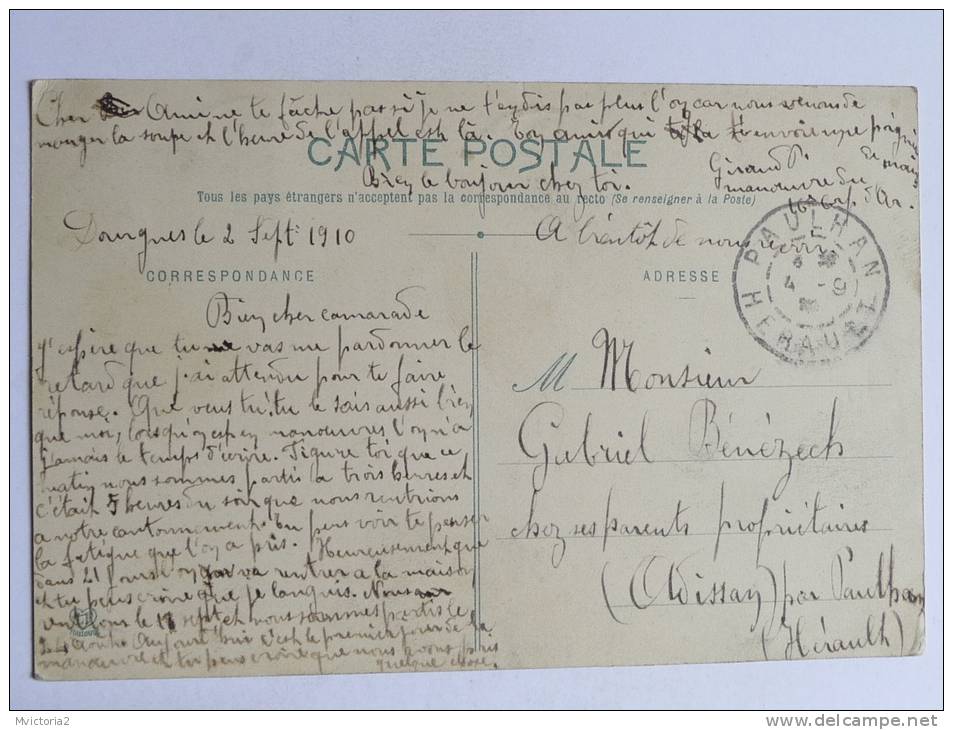 Cher Ami ne te fâche pas si je ne t'eydis pas plus l'oy car nous venons de
manger la soupe et l'heure de l'appel est là. Toy ami qui t'envoie une poignée
de main
CARTE POSTALE
Giraud P.
Biey le bonjour chez toi.
manœuvre du
16e Corp d'Ar.
Tous les pays étrangers n'acceptent pas la correspondance au recto (Se renseigner à la Poste)
Dourgnes le 2 Sept 1910
A bientôt de nous revoir
CORRESPONDANCE
ADRESSE
PAULHAN
4 - 9
HERAULT
Biey cher camarade
J'espère que tu vas me pardonner le
retard que j'ai attendu pour te faire
réponse. Que veus tu tu le sais aussi biey
que moi, lorsqu'oy est ey manœuvres l'oy n'a
jamais le temps d'écrire. Figure toi que ce
matiy nous sommes partis à trois heures et
c'était 5 heures du soir que nous rentrions
a notre cantonnement. Tu peus voir te penser
la fatigue que l'oy a pris. Heureusement que
dans 21 jours oy va rentrer a la maison
et tu peus croire que je languis. Nous
rentrons le 1 sept et nous sommes partis le
24 août. Aujourd'hui c'est le premier jour de la
manœuvre et tu peus croire que nous avons pris
quelque chose.
M Monsieur
Gabriel Bénézech
chez ses parents propriétaires
(Adissay) par Paulhan
(Hérault)
Mvictoria2
www.delcampe.net